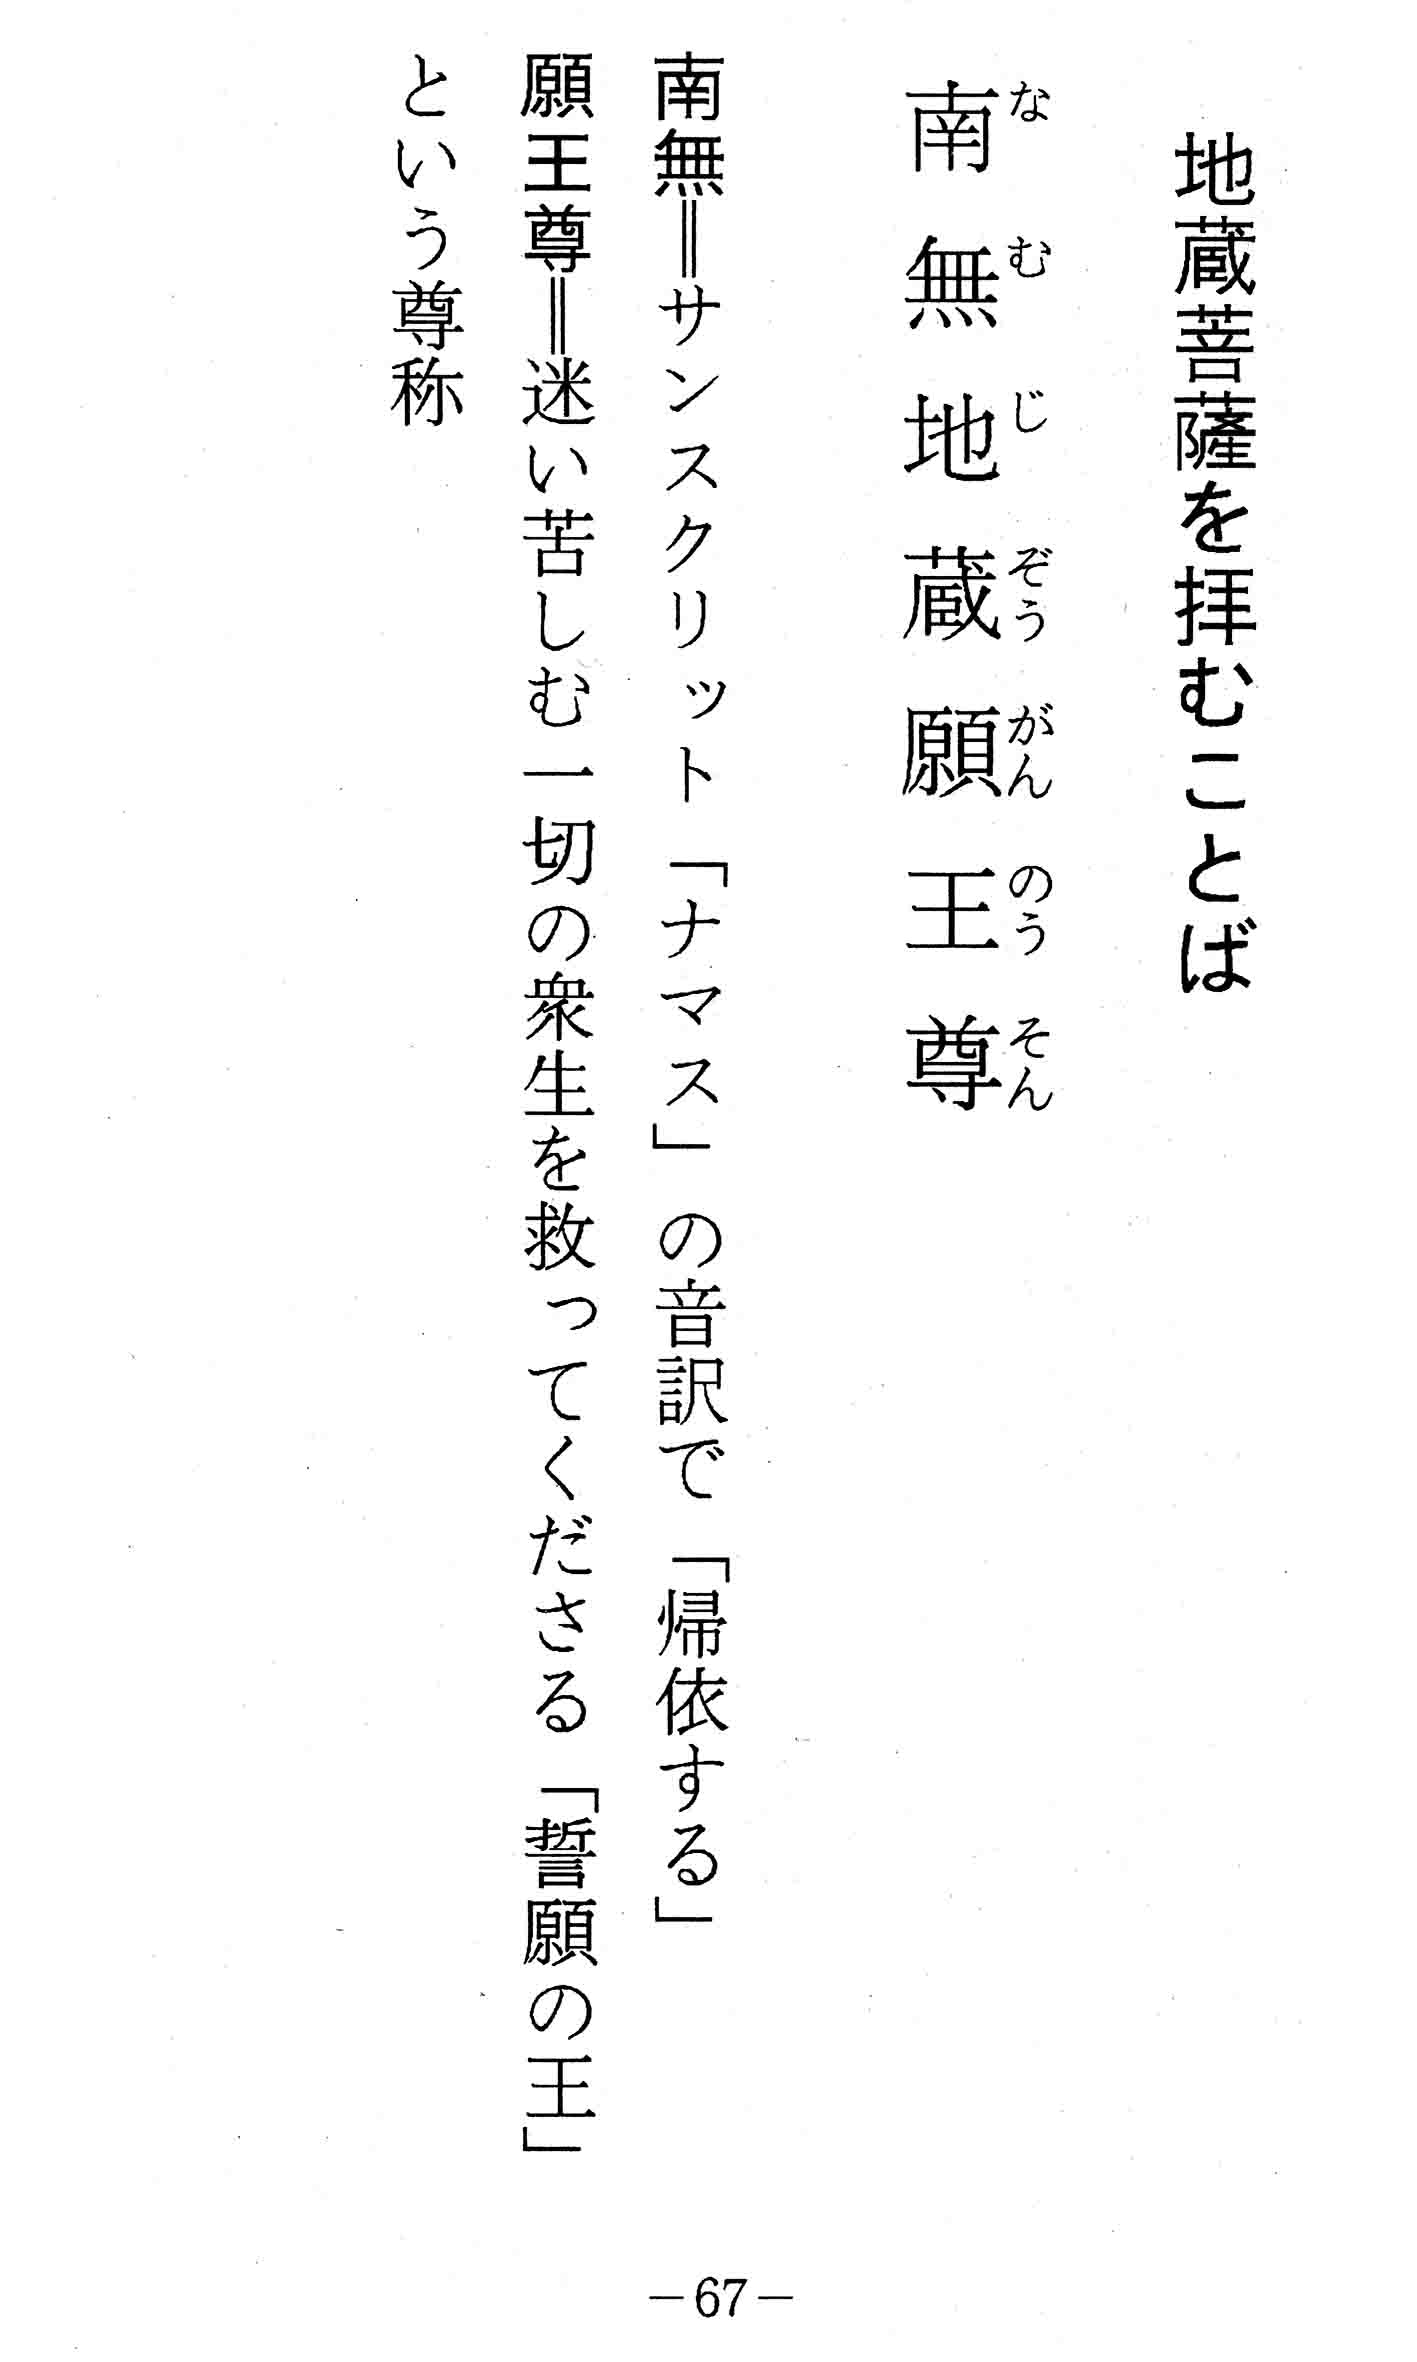 地蔵菩薩を拝むことば
南無地蔵願王尊
なむじぞうがんのうそん
南無＝サンスクリット「ナマス」の音訳で「帰依する」
願王尊＝迷い苦しむ一切の衆生を救ってくださる「誓願の王」
という尊称
－67－